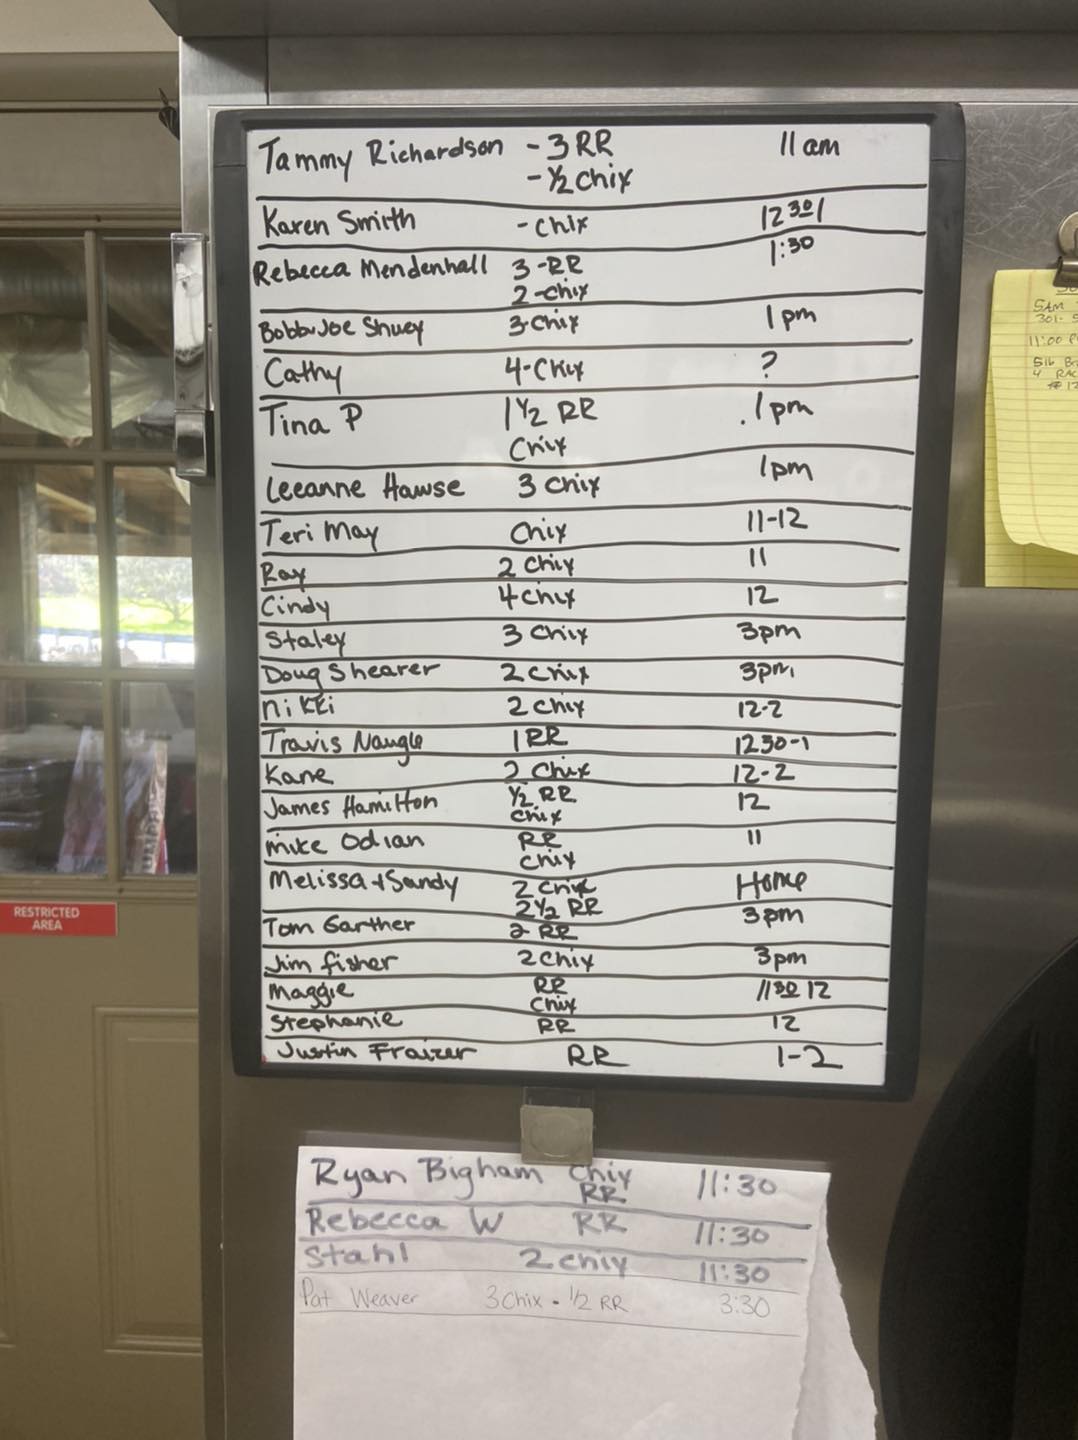 Tammy Richardson - 3 RR 11 am
- ½ Chix
Karen Smith - Chix 12 30/1
Rebecca Mendenhall 3 - RR 1:30
2 - Chix
Bobbi Joe Shuey 3 - Chix 1 pm
Cathy 4 - Chix ?
Tina P 1 ½ RR . 1 pm
Chix
Leeanne Hawse 3 Chix 1 pm
Teri May Chix 11-12
Ray 2 Chix 11
Cindy 4 Chix 12
Staley 3 Chix 3pm
Doug Shearer 2 Chix 3pm
Nikki 2 Chix 12-2
Travis Naugle 1 RR 1230-1
Kane 2 Chix 12-2
James Hamilton ½ RR 12
Chix
Mike Odian RR 11
Chix
Melissa + Sandy 2 Chix Home
2 ½ RR
Tom Garther 2 RR 3pm
Jim Fisher 2 Chix 3pm
Maggie RR 1130 12
Chix
Stephanie RR 12
Justin Fraizer RR 1-2
Ryan Bigham Chix 11:30
RR
Rebecca W RR 11:30
Stahl 2 Chix 11:30
Pat Weaver 3 Chix - ½ RR 3:30
RESTRICTED
AREA
5AM
301-
11:00
51b
4